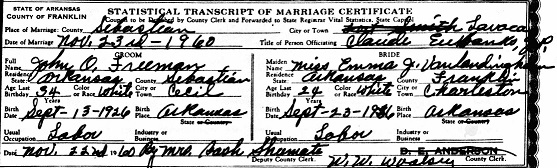 STATE OF ARKANSAS
COUNTY OF FRANKLIN
STATISTICAL TRANSCRIPT OF MARRIAGE CERTIFICATE
County Clerk and Forwarded to State Registrar Vital Statistics, State Capitol
Place of Marriage: County Sebastian City or Town Fort Smith Lavaca
Date of Marriage Nov. 23rd - 1960 Title of Person Officiating Claude Eubanks, J.P.
GROOM BRIDE
Full Name John O. Freeman Maiden Name Miss Emma J. Vanlandingham
Residence State Arkansas County Sebastian Residence State Arkansas County Franklin
Age Last Birthday 34 Years Color or Race White City or Town Cecil Age Last Birthday 24 Years Color or Race White City or Town Charleston
Birth Date Sept-13-1926 Birth Place Arkansas Birth Date Sept-23-1936 Birth Place Arkansas
State or County State or County
Usual Occupation Labor Industry or Business Usual Occupation Labor Industry or Business
Date Nov. 22nd 1960 By Mrs. Deputy County Clerk D. E. ANDERSON County Clerk.
W. W.